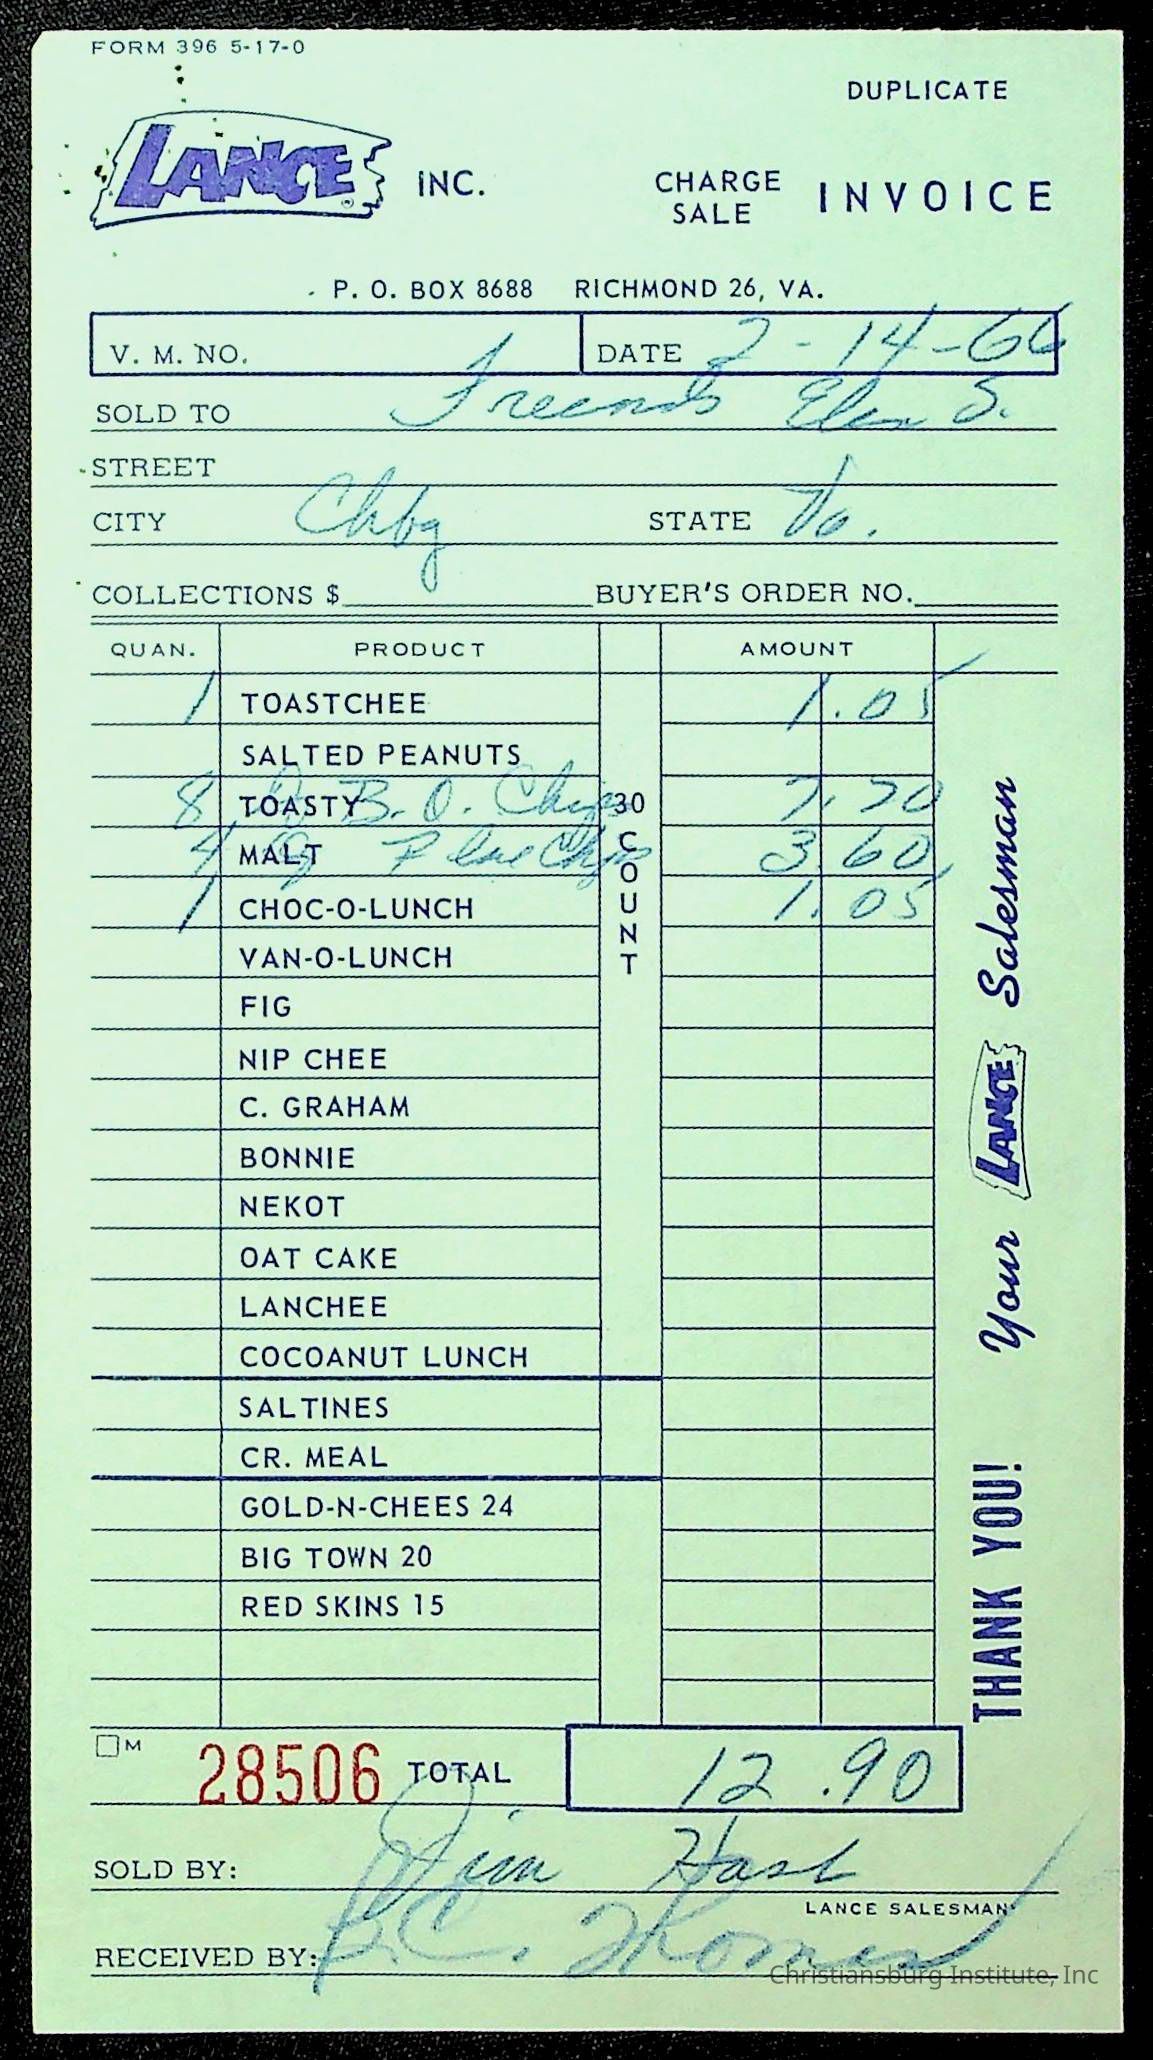 FORM 396 5-17-0
DUPLICATE
LANCE® INC.
CHARGE SALE INVOICE
P. O. BOX 8688 RICHMOND 26, VA.
V. M. NO. DATE 2-14-66
SOLD TO Elem S.
STREET
CITY Chbg STATE Va.
COLLECTIONS $ BUYER'S ORDER NO.
QUAN. PRODUCT AMOUNT
1 TOASTCHEE 1.05
SALTED PEANUTS
8 TOASTY B. Q. Chips 7.20
4 MALT Chips 3.60
1 CHOC-O-LUNCH 1.05
30 COUNT
VAN-O-LUNCH
FIG
NIP CHEE
C. GRAHAM
BONNIE
NEKOT
OAT CAKE
LANCHEE
COCOANUT LUNCH
SALTINES
CR. MEAL
GOLD-N-CHEES 24
BIG TOWN 20
RED SKINS 15
THANK YOU! Your LANCE Salesman
M 28506 TOTAL 12.90
SOLD BY: Jim
LANCE SALESMAN
RECEIVED BY: C. Thomas
Christiansburg Institute, Inc